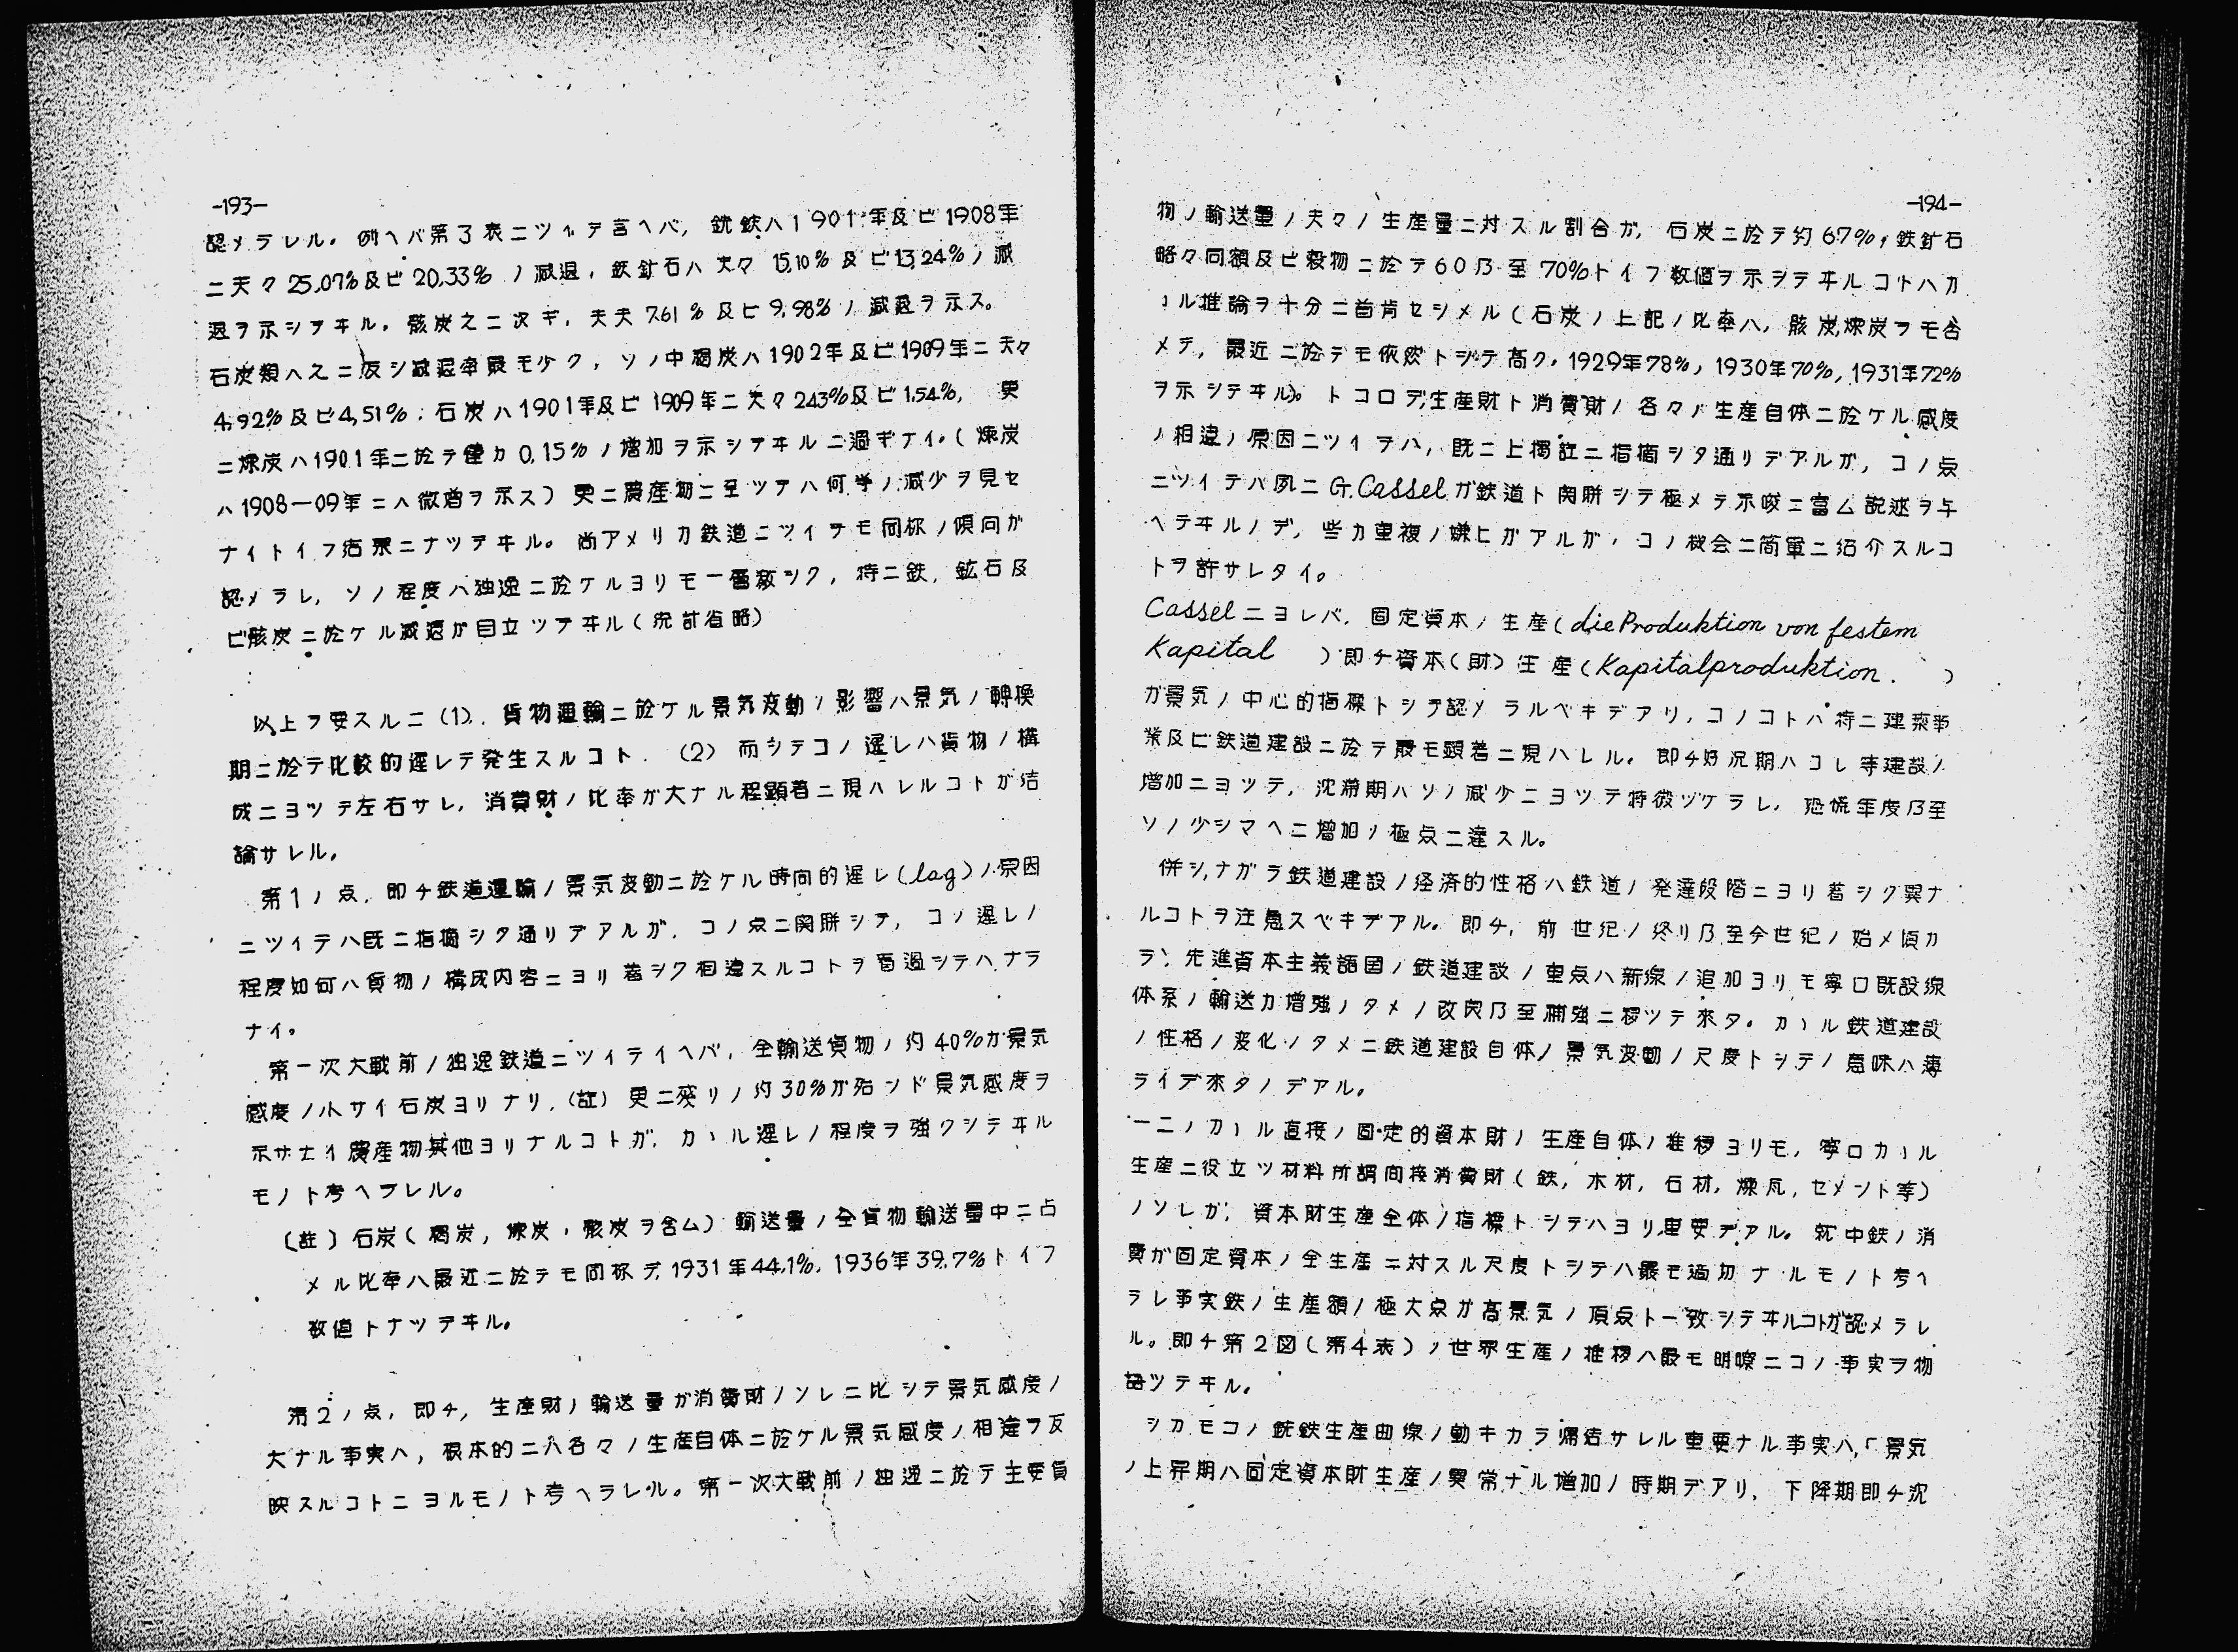 -193-
認メラレル。例ヘバ第3表ニツイテ言ヘバ,銑鉄ハ1901年及ビ1908年
ニ夫々25.07%及ビ20.33%ノ減退,鉄鉱石ハ夫々15.10%及ビ13.24%ノ減
退ヲ示シテヰル。骸炭之ニ次ギ,夫夫7.61%及ビ9.98%ノ減退ヲ示ス。
石炭類ハ之ニ反シ減退率最モ少ク,ソノ中褐炭ハ1902年及ビ1909年ニ夫々
4.92%及ビ4,51%;石炭ハ1901年及ビ1909年ニ夫々2.43%及ビ1.54%, 更
ニ煉炭ハ1901年ニ於テ僅カ0.15%ノ増加ヲ示シテヰルニ過ギナイ。(煉炭
ハ1908—09年ニハ微増ヲ示ス)更ニ農産物ニ至ツテハ何等ノ減少ヲ見セ
ナイトイフ結果ニナツテヰル。尚アメリカ鉄道ニツイテモ同様ノ傾向ガ
認メラレ,ソノ程度ハ独逸ニ於ケルヨリモ一層激シク,特ニ鉄,鉱石及
ビ骸炭ニ於ケル減退ガ目立ツテヰル(統計省略)
以上ヲ要スルニ(1).貨物運輸ニ於ケル景気変動ノ影響ハ景気ノ転換
期ニ於テ比較的遅レテ発生スルコト.(2)而シテコノ遅レハ貨物ノ構
成ニヨツテ左右サレ,消費財ノ比率ガ大ナル程顕著ニ現ハレルコトガ結
論サレル。
第1ノ点,即チ鉄道運輸ノ景気変動ニ於ケル時間的遅レ(lag)ノ原因
ニツイテハ既ニ指摘シタ通リデアルガ,コノ点ニ関聯シテ,コノ遅レノ
程度如何ハ貨物ノ構成内容ニヨリ著シク相違スルコトヲ看過シテハナラ
ナイ。
第一次大戦前ノ独逸鉄道ニツイテイヘバ,全輸送貨物ノ約40%ガ景気
感度ノ小サイ石炭ヨリナリ,(註)更ニ残リノ約30%ガ殆ンド景気感度ヲ
示サナイ農産物其他ヨリナルコトガ,カヽル遅レノ程度ヲ強クシテヰル
モノト考ヘラレル。
(註)石炭(褐炭,煉炭,骸炭ヲ含ム)輸送量ノ全貨物輸送量中ニ占
メル比率ハ最近ニ於テモ同様デ,1931年44.1%,1936年39.7%トイフ
数値トナツテヰル。
第2ノ点,即チ,生産財ノ輸送量ガ消費財ノソレニ比シテ景気感度ノ
大ナル事実ハ,根本的ニハ各々ノ生産自体ニ於ケル景気感度ノ相違ヲ反
映スルコトニヨルモノト考ヘラレル。第一次大戦前ノ独逸ニ於テ主要貨
-194-
物ノ輸送量ノ夫々ノ生産量ニ対スル割合ガ,石炭ニ於テ約67%,鉄鉱石
略々同額及ビ穀物ニ於テ60乃至70%トイフ数値ヲ示シテヰルコトハカ
ヽル推論ヲ十分ニ首肯セシメル(石炭ノ上記ノ比率ハ,骸炭,煉炭ヲモ含
メテ,最近ニ於テモ依然トシテ高ク,1929年78%,1930年70%,1931年72%
ヲ示シテヰル)。トコロデ,生産財ト消費財ノ各々ノ生産自体ニ於ケル感度
ノ相違ノ原因ニツイテハ,既ニ上掲註ニ指摘シタ通リデアルガ,コノ点
ニツイテハ夙ニG.Casselガ鉄道ト関聯シテ極メテ示唆ニ富ム説述ヲ与
ヘテヰルノデ,些カ重複ノ嫌ヒガアルガ,コノ機会ニ簡単ニ紹介スルコ
トヲ許サレタイ。
Casselニヨレバ,固定資本ノ生産(die Produktion von festem
Kapital )即チ資本(財)生産(Kapitalproduktion. )
ガ景気ノ中心的指標トシテ認メラルベキデアリ,コノコトハ特ニ建築事
業及ビ鉄道建設ニ於テ最モ顕著ニ現ハレル。即チ好況期ハコレ等建設ノ
増加ニヨツテ,沈滞期ハソノ減少ニヨツテ特徴ヅケラレ,恐慌年度乃至
ソノ少シマヘニ増加ノ極点ニ達スル。
併シ,ナガラ鉄道建設ノ経済的性格ハ鉄道ノ発達段階ニヨリ著シク異ナ
ルコトヲ注意スベキデアル。即チ,前世紀ノ終リ乃至今世紀ノ始メ頃カ
ラ,先進資本主義諸国ノ鉄道建設ノ重点ハ新線ノ追加ヨリモ寧ロ既設線
体系ノ輸送力増強ノタメノ改良乃至補強ニ移ツテ来タ。カヽル鉄道建設
ノ性格ノ変化ノタメニ鉄道建設自体ノ景気波動ノ尺度トシテノ意味ハ薄
ライデ来タノデアル。
一二ノカヽル直接ノ固定的資本財ノ生産自体ノ推移ヨリモ,寧ロカヽル
生産ニ役立ツ材料所謂間接消費財(鉄,木材,石材,煉瓦,セメント等)
ノソレガ,資本財生産全体ノ指標トシテハヨリ重要デアル。就中鉄ノ消
費ガ固定資本ノ全生産ニ対スル尺度トシテハ最モ適切ナルモノト考ヘ
ラレ事実鉄ノ生産額ノ極大点ガ高景気ノ頂点ト一致シテヰルコトガ認メラレ
ル。即チ第2図(第4表)ノ世界生産ノ推移ハ最モ明瞭ニコノ事実ヲ物
語ツテヰル。
シカモコノ銑鉄生産曲線ノ動キカラ帰結サレル重要ナル事実ハ,「景気
ノ上昇期ハ固定資本財生産ノ異常ナル増加ノ時期デアリ,下降期即チ沈